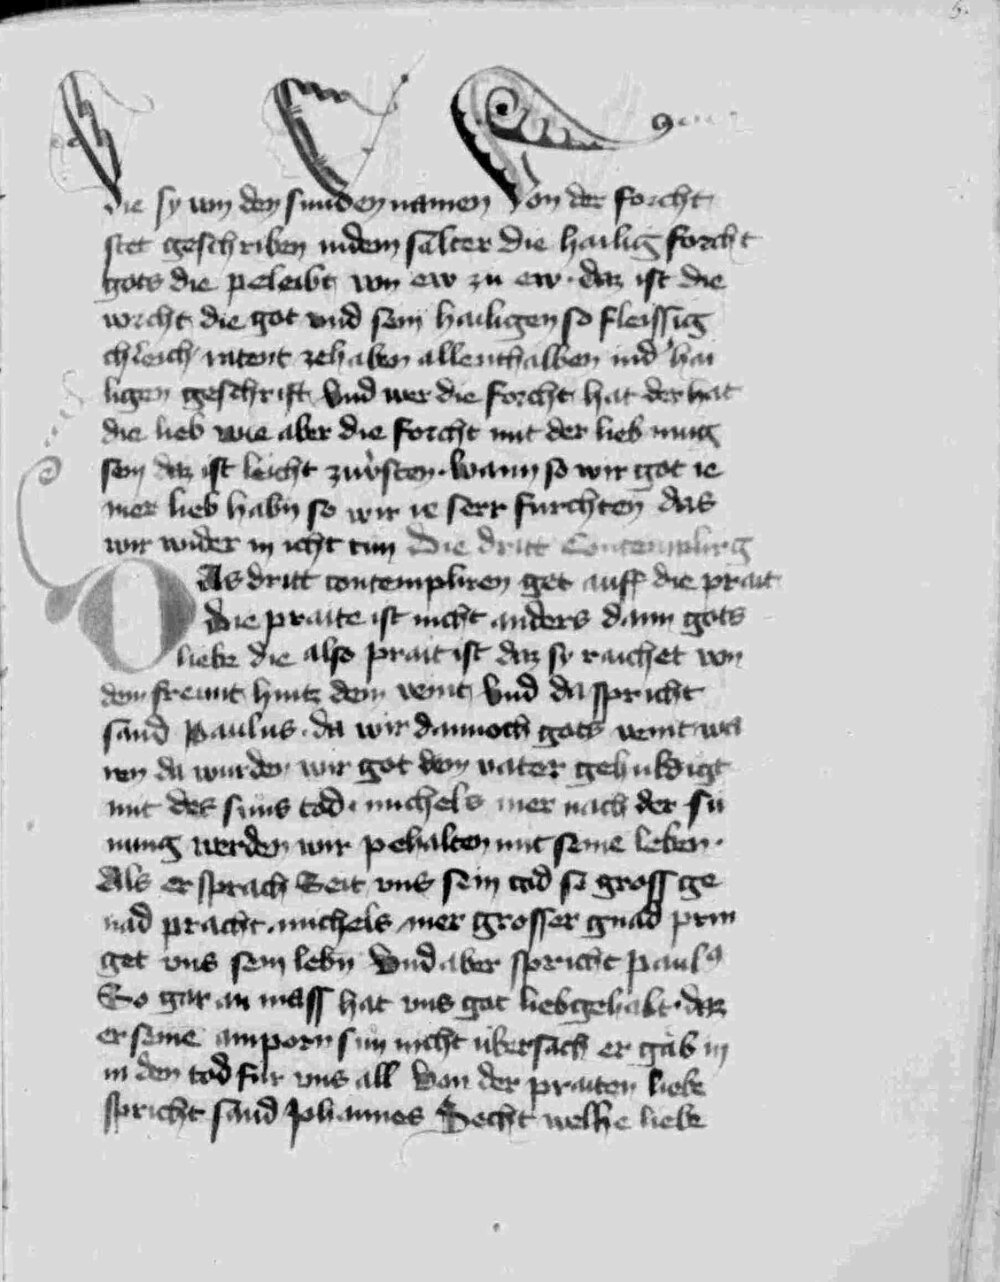 5.
Die sy von den sunden namen Von der forcht
stet geschriben in dem salter Die hailig forcht
gots die peleibt von ew zu ew · daz ist die
vorcht die got vnd sein hailigen so fleissig
chleich ratent zehaben allenthalben in d' hai
ligen geschrift Vnd wer die forcht hat der hat
die lieb wie aber die forcht mit der lieb mug
sein daz ist leicht zuversten · wann so wir got ie
mer lieb habn so wir ie serr furchten das
wir wider in icht tun Die dritt Contemplirg
DAs dritt contempliren get auff die prait
Die praite ist nicht anders dann gots
liebe die also prait ist daz sy raichet von
dem freunt hintz dem veint Vnd da spricht
sand Paulus · da wir dannoch gots veint wa
ren da wurden wir got dem vater gehuldigt
mit des suns tod · michels mer nach der su
nung werden wir pehalten mit seine leben ·
Als er sprach Seit vns sein tod so gross ge
nad pracht · michels mer grosser gnad prin
get vns sein lebn Vnd aber spricht paul9
So gar an mass hat vns got lieb gehabt · daz
er seine ainporn sun nicht ubersach er gab in
in den tod fur vns all Von der praiten liebe
spricht sand Johannes Secht welhe liebe